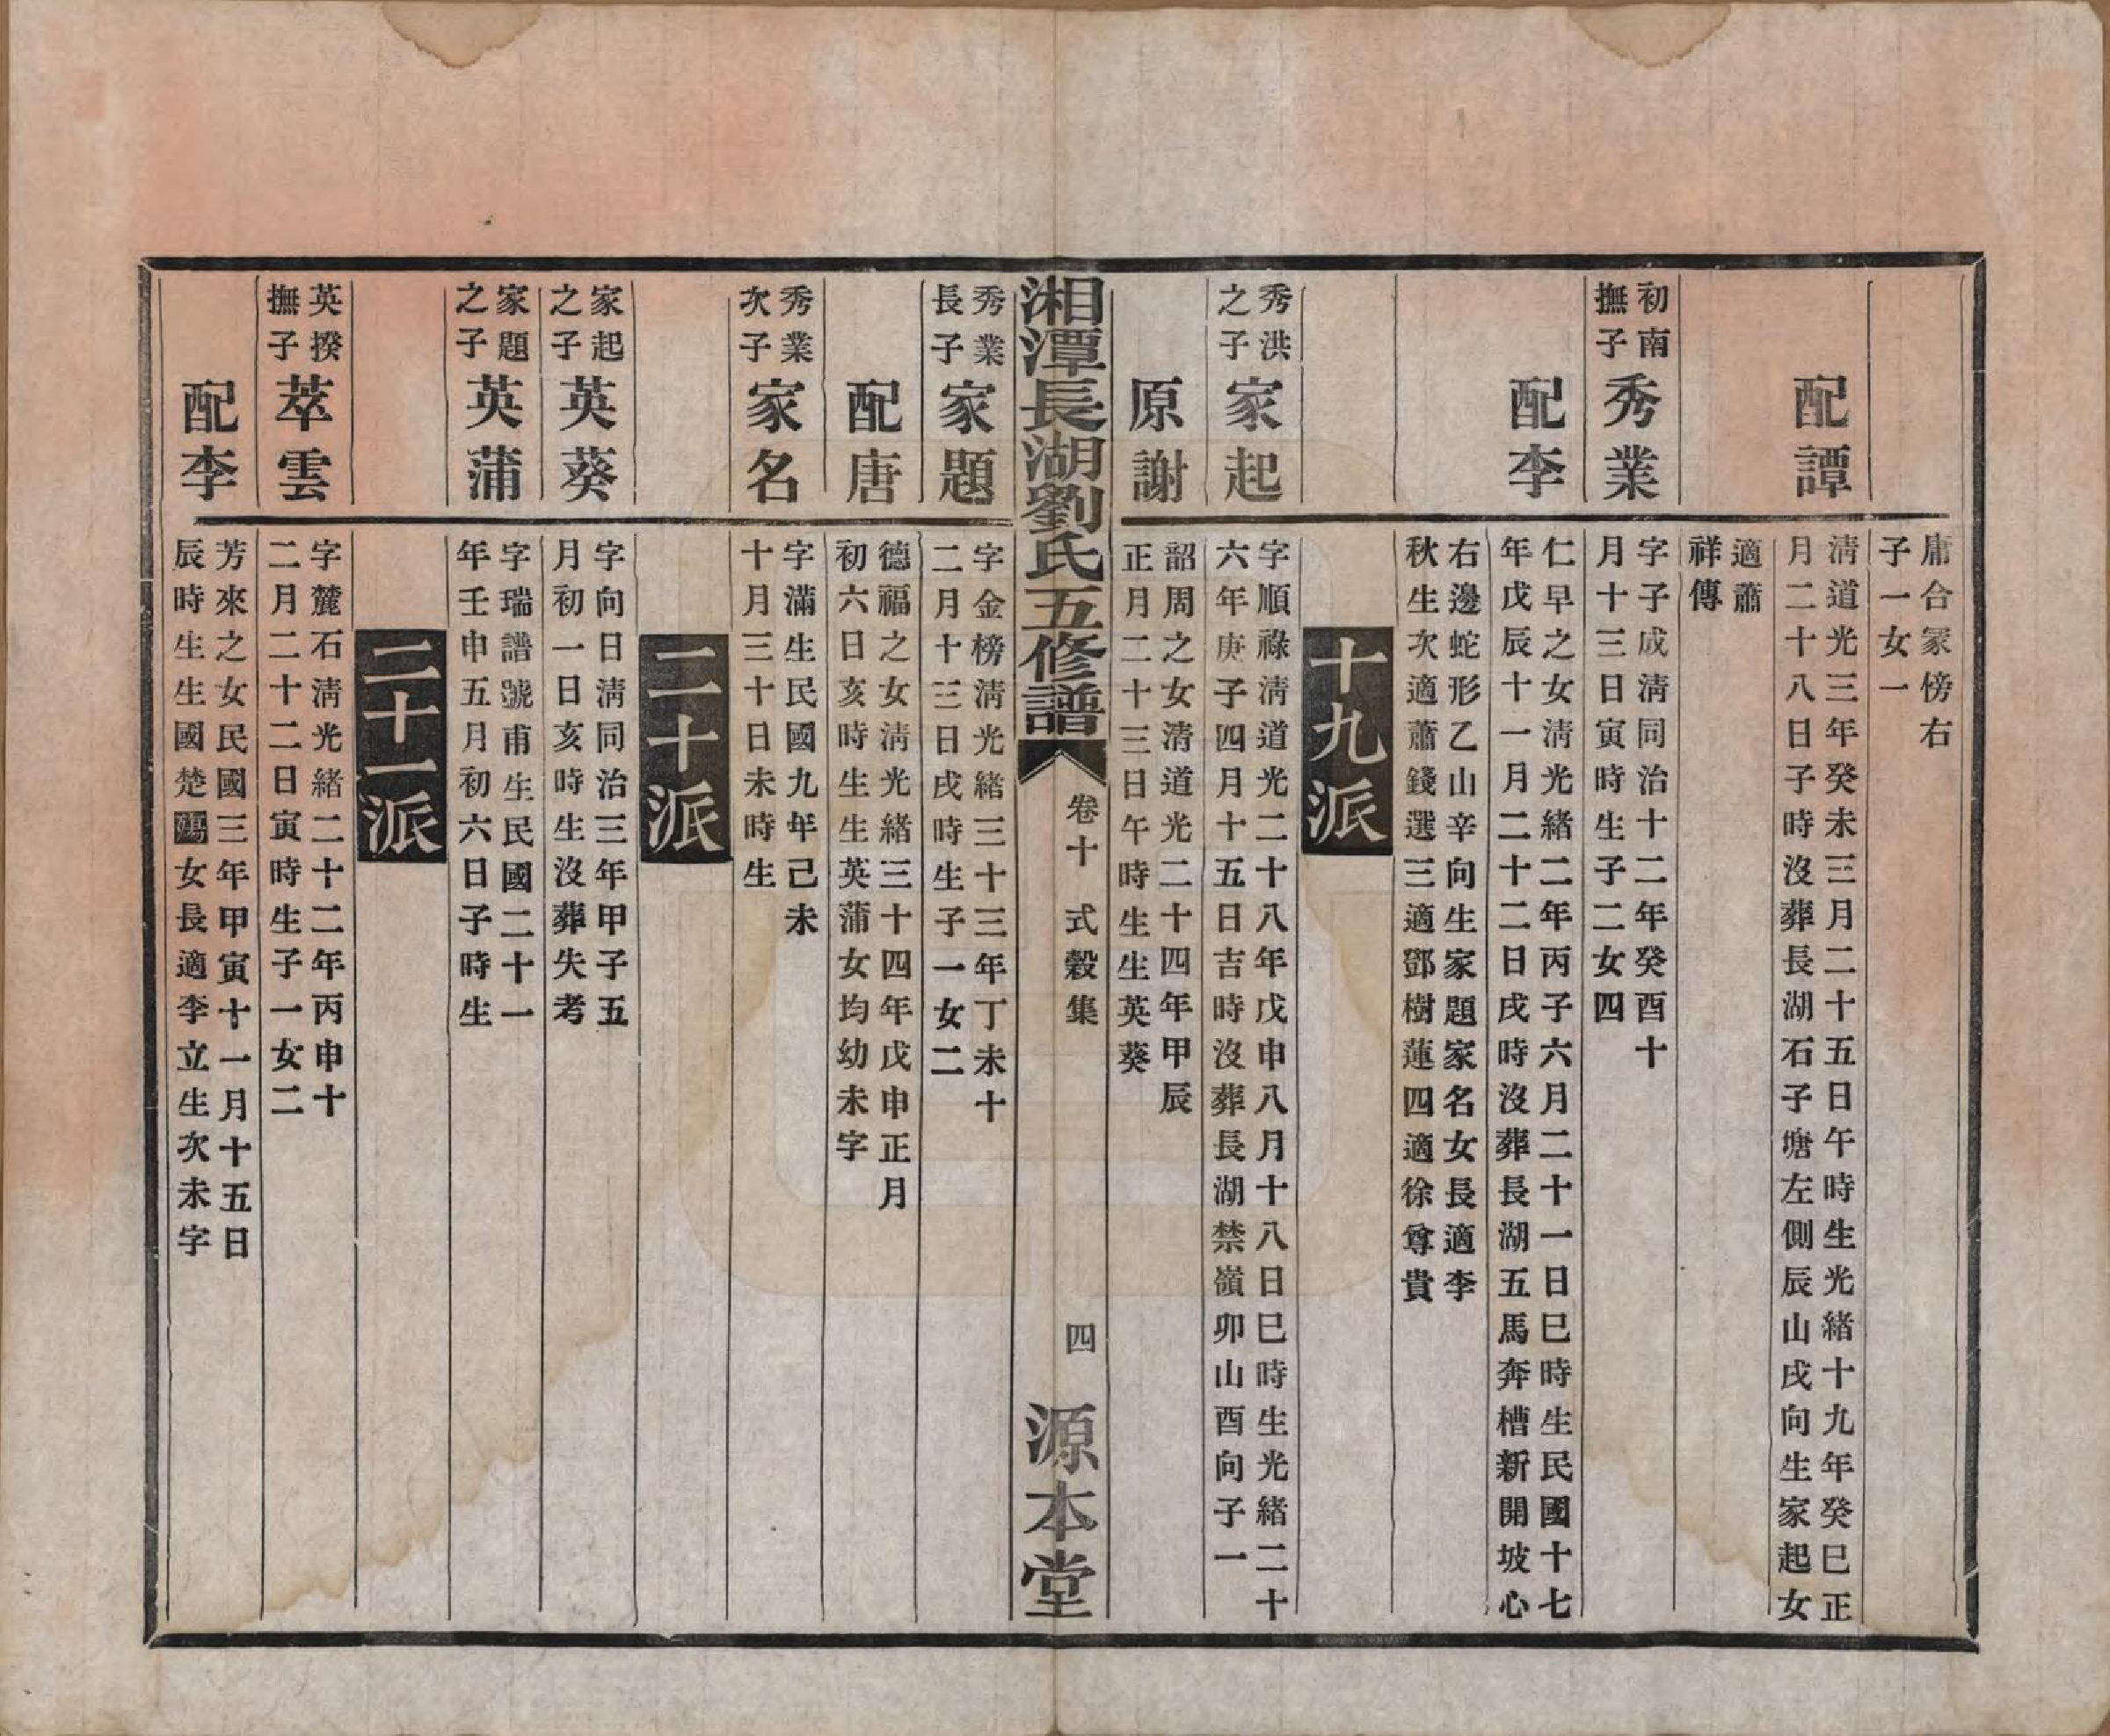 庸合冢傍右
子一女一
配譚
淸道光三年癸未三月二十五日午時生光緒十九年癸巳正
月二十八日子時沒葬長湖石子塘左側辰山戌向生家起女
適蕭
祥傳
初南
撫子
秀業
字子成淸同治十二年癸酉十
月十三日寅時生子二女四
配李
仁早之女淸光緒二年丙子六月二十一日巳時生民國十七
年戊辰十一月二十二日戌時沒葬長湖五馬奔槽新開坡心
右邊蛇形乙山辛向生家題家名女長適李
秋生次適蕭錢選三適鄧樹蓮四適徐尊貴
十九派
秀洪
之子
家起
字順祿淸道光二十八年戊申八月十八日巳時生光緒二十
六年庚子四月十五日吉時沒葬長湖禁嶺卯山酉向子一
原謝
韶周之女清道光二十四年甲辰
正月二十三日午時生生英葵
湘潭長湖劉氏五修譜
卷十 式穀集
四
源本堂
秀業
長子
家題
字金榜淸光緒三十三年丁未十
二月十三日戌時生子一女二
配唐
德福之女淸光緒三十四年戊申正月
初六日亥時生生英蒲女均幼未字
秀業
次子
家名
字滿生民國九年己未
十月三十日未時生
二十派
家起
之子
英葵
字向日淸同治三年甲子五
月初一日亥時生沒葬失考
家題
之子
英蒲
字瑞譜號甫生民國二十一
年壬申五月初六日子時生
二十一派
英揆
撫子
萃雲
字麓石淸光緒二十二年丙申十
二月二十二日寅時生子一女二
配李
芳來之女民國三年甲寅十一月十五日
辰時生生國楚殤女長適李立生次未字